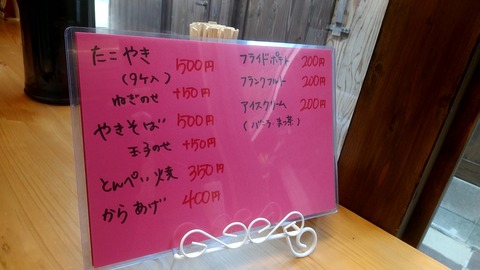 たこやき 500円
(9ケ入)
ねぎのせ +50円
やきそば 500円
玉子のせ +50円
とんぺい焼 350円
からあげ 400円
フライドポテト 200円
フランクフルト 200円
アイスクリーム 200円
(バニラ・まっ茶)